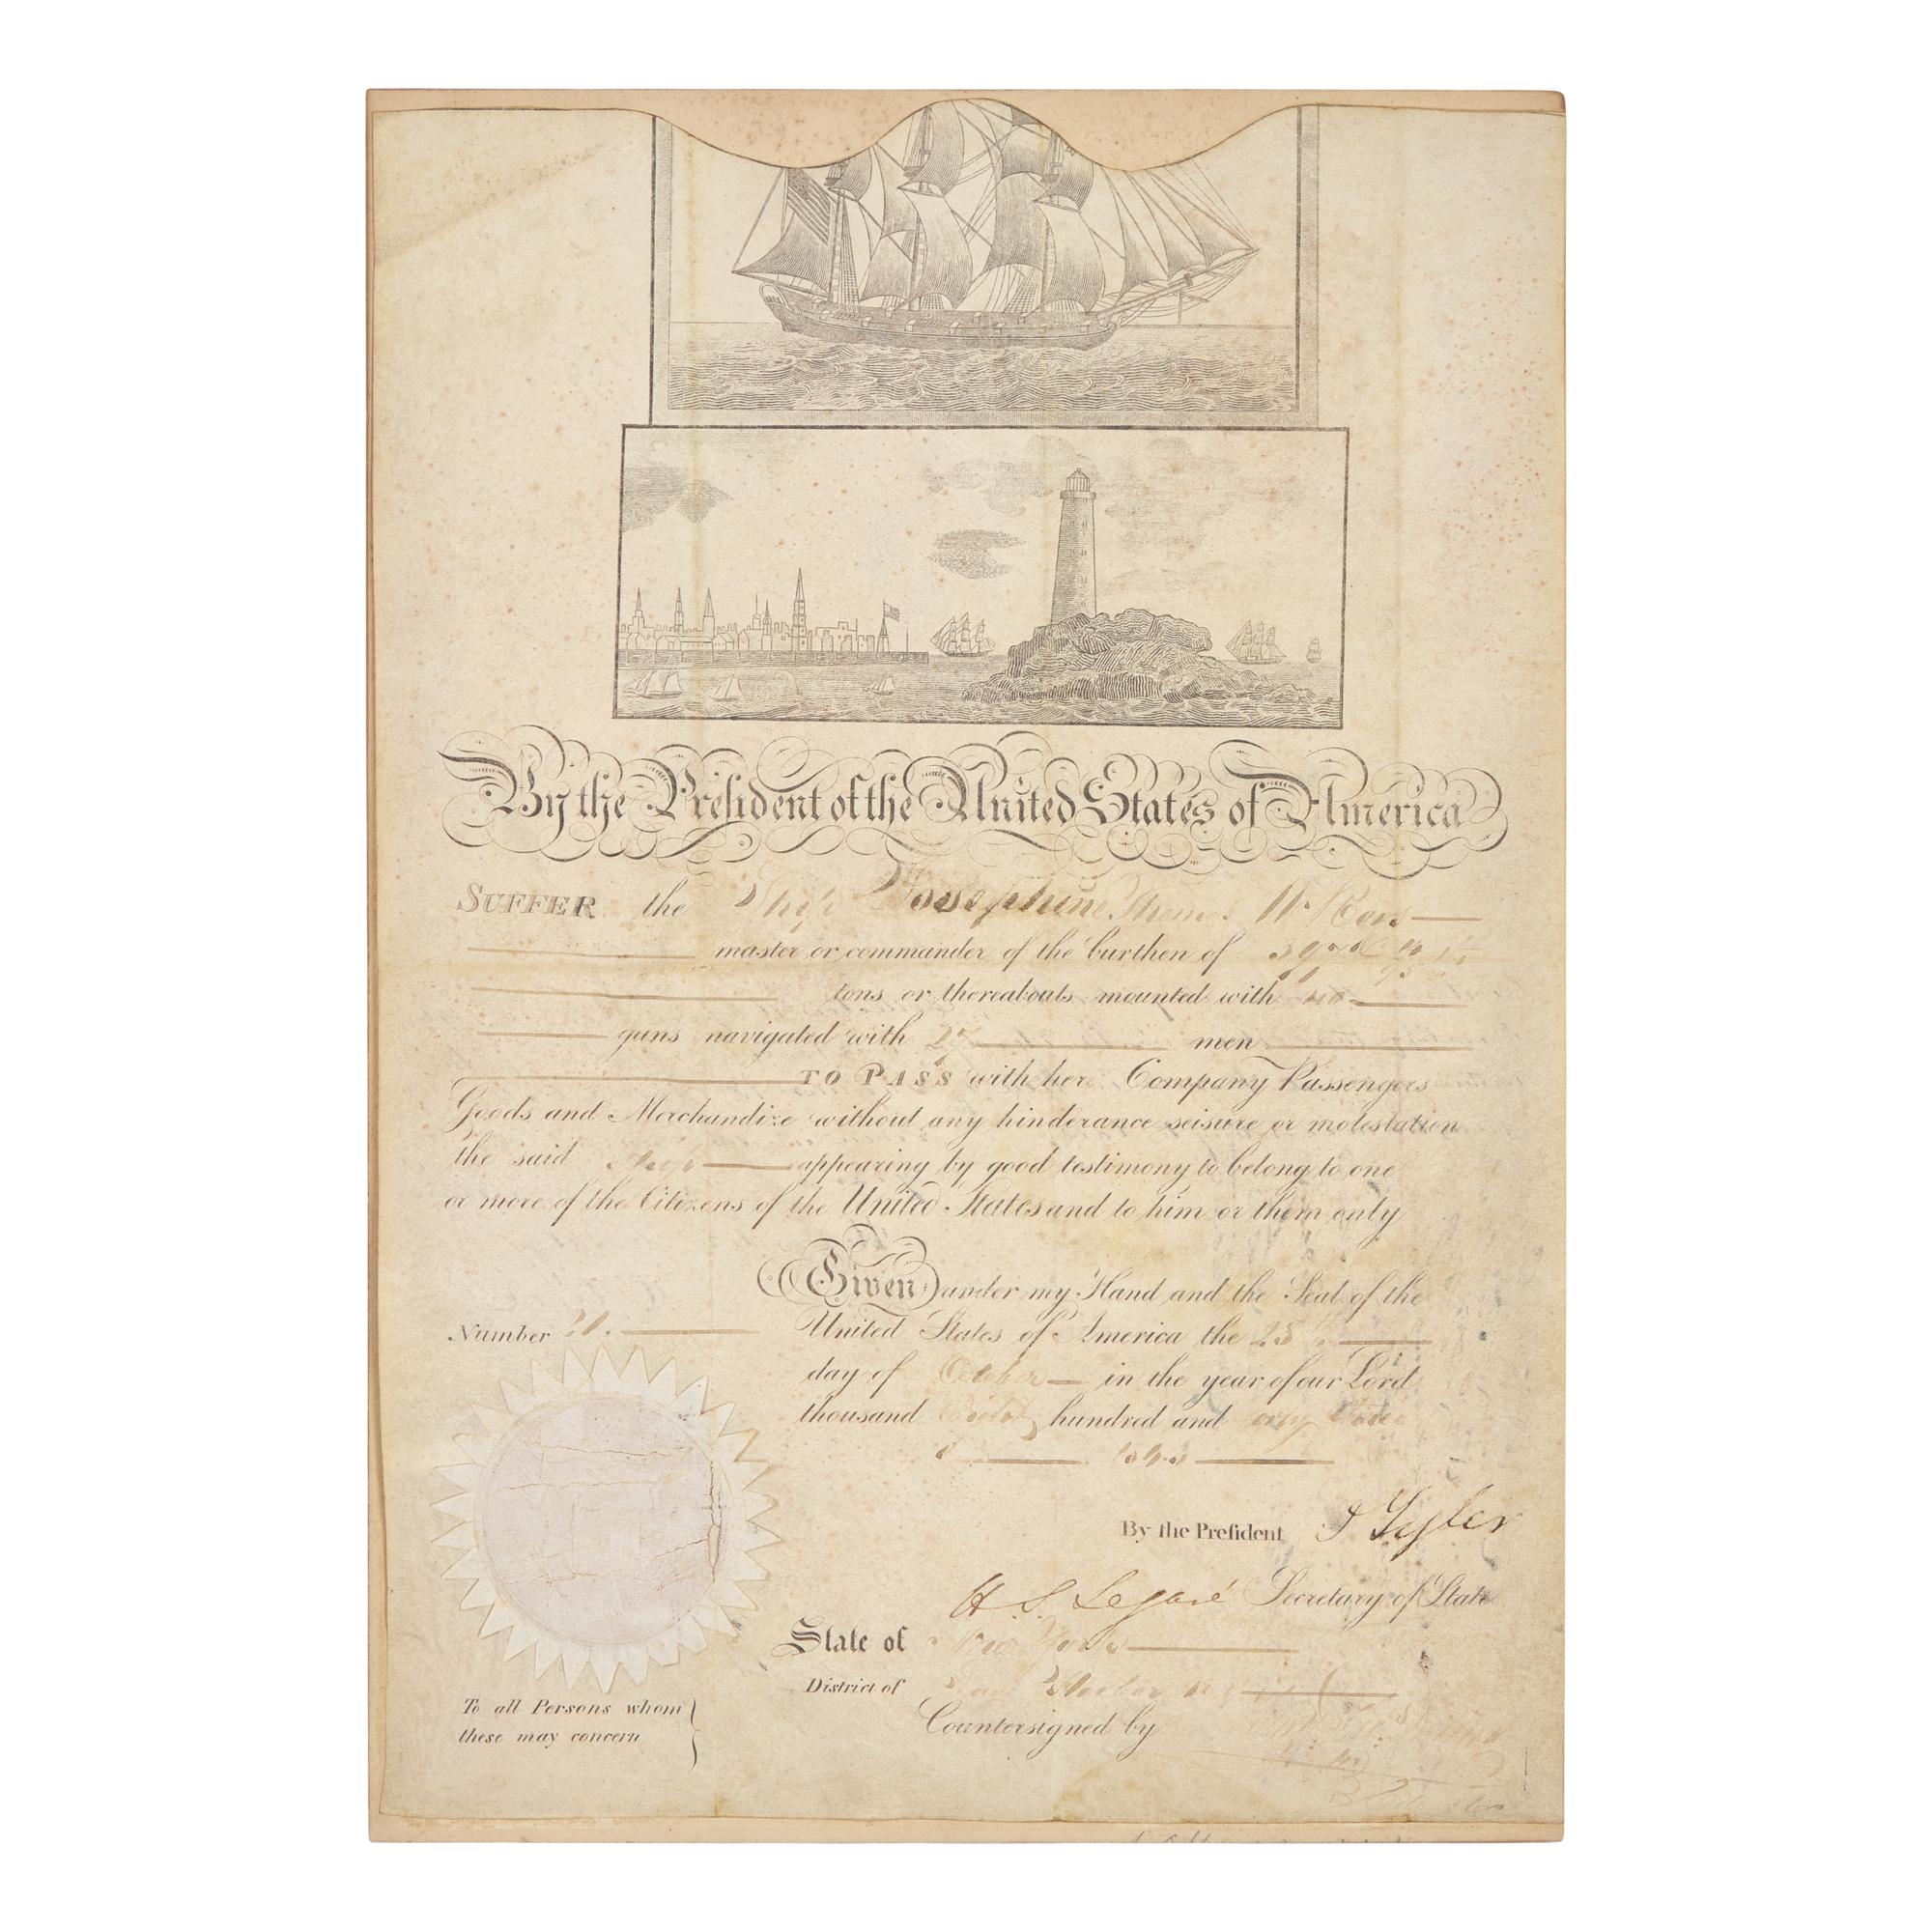 By the President of the United States of America
SUFFER the Ship Josephine Thomas W.
master or commander of the burthen of
tons or thereabouts mounted with no
guns navigated with men
TO PASS with her Company Passengers
Goods and Merchandize without any hinderance seisure or molestation
the said Ship appearing by good testimony to belong to one
or more of the Citizens of the United States and to him or them only
Given under my Hand and the Seal of the
Number 21. United States of America the 25th
day of October in the year of our Lord
thousand Eight hundred and
1843
By the President J Tyler
H S Legaré Secretary of State
State of New York
District of Sag Harbor
Countersigned by
To all Persons whom
these may concern